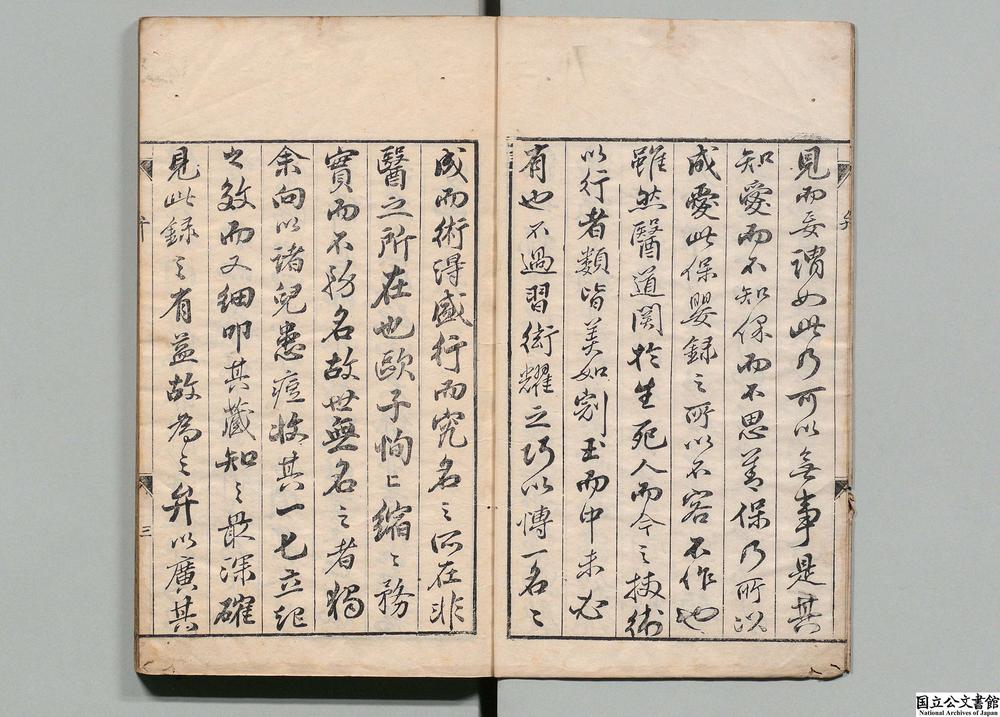 見而妄謂如此乃可以無事是其
知愛而不知保而不思善保乃所以
成愛此保嬰録之所以不容不作也
雖然醫道関於生死人而今之挾術
以行者類皆美如剜玉而中未必
有也不過習衒耀之巧以慱一名之
成而術得盛行而究名之所在非
醫之所在也歐子恂〻縮〻務
實而不務名故世無名之者獨
余向以諸兒患痘收其一匕立起
之效而又細叩其蔵知之最深確
見此録之有益故為之弁以廣其
弁
三
国立公文書館
National Archives of Japan